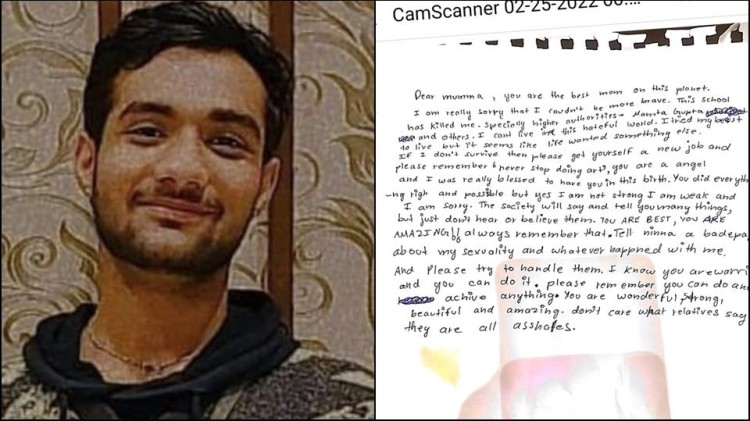 CamScanner 02-25-2022 06:...
Dear mumma, you are the best mom on this planet.
I am really sorry that I couldn't be more brave. This school
has killed me. Specially higher authorities - Mamta Gupta
and others. I cant live in this hateful world. I tried my best
to live but it seems like life wanted something else.
If I don't survive then please get yourself a new job and
please remember "never stop doing art", you are a angel
and I was really blessed to have you in this birth. You did everyth
-ng righ and possible but yes I am not strong I am weak and
I am sorry. The society will say and tell you many things,
but just don't hear or believe them. YOU ARE BEST, YOU ARE
AMAZING!! always remember that. Tell ninna a badepa
about my sexuality and whatever happned with me.
And Please try to handle them. I know you are warri
and you can do it. please remember you can do and
achive anything. You are wonderful, strong,
beautiful and amazing. don't care what relatives say
they are all assholes.